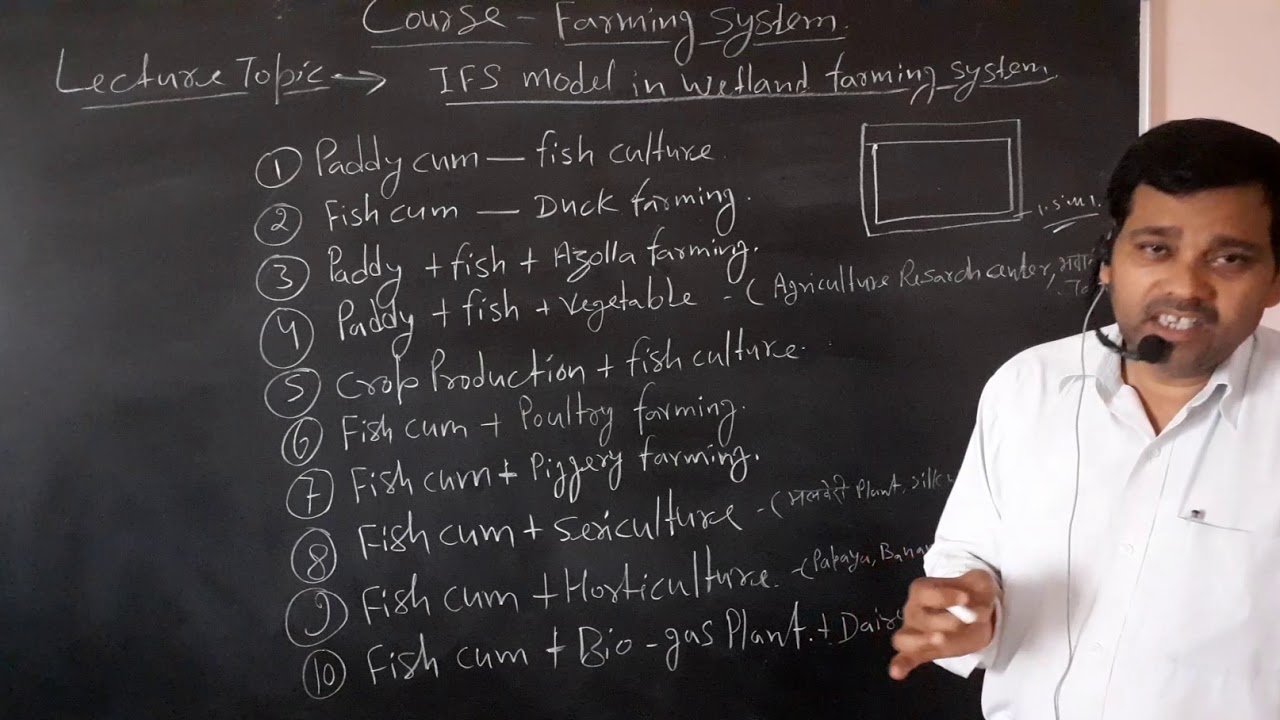 Course - Farming System.
Lecture Topic → IFS model in wetland farming system
① Paddy cum — fish culture.
② Fish cum — Duck farming.
③ Paddy + fish + Azolla farming.
④ Paddy + fish + vegetable - (Agriculture Resarch center,
⑤ Crop Production + fish culture.
⑥ Fish cum + Poultry farming.
⑦ Fish cum + Piggery farming.
⑧ Fish cum + Sericulture - (मलबेरी Plant,
⑨ Fish cum + Horticulture. - (Papaya,
⑩ Fish cum + Bio-gas Plant. +